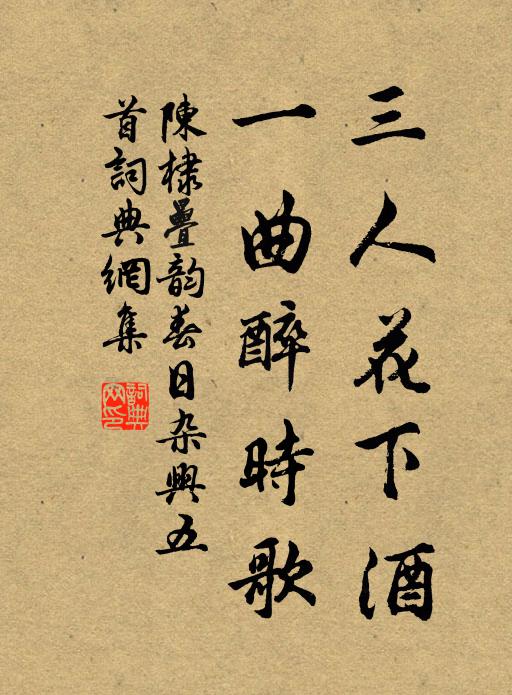 三人花下酒
一曲醉時歌
陳棣疊韵春日杂興五
首詞典網集
詞典
网印